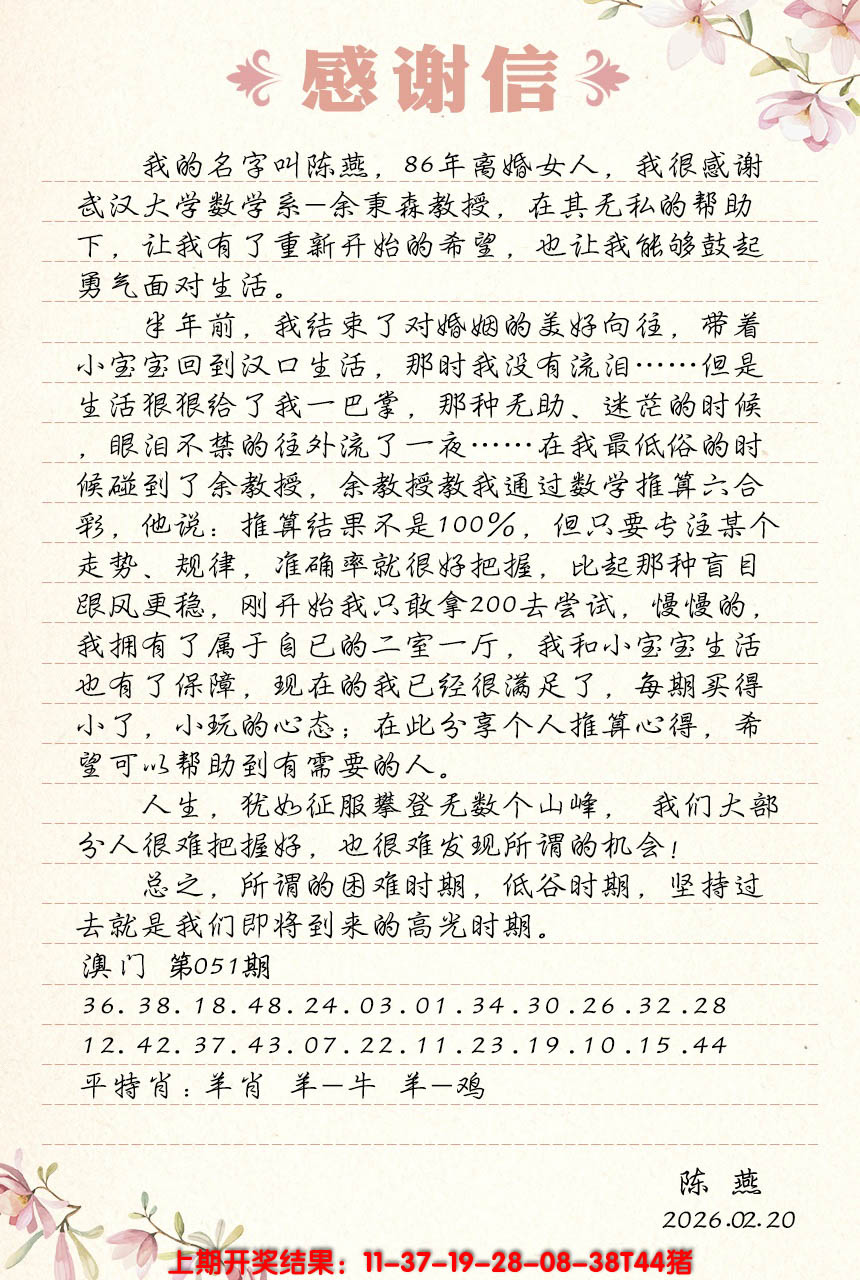 感谢信
我的名字叫陈燕，86年离婚女人，我很感谢
武汉大学数学系—余秉森教授，在其无私的帮助
下，让我有了重新开始的希望，也让我能够鼓起
勇气面对生活。
半年前，我结束了对婚姻的美好向往，带着
小宝宝回到汉口生活，那时我没有流泪……但是
生活狠狠给了我一巴掌，那种无助、迷茫的时候
，眼泪不禁的往外流了一夜……在我最低俗的时
候碰到了余教授，余教授教我通过数学推算六合
彩，他说：推算结果不是100%，但只要专注某个
走势、规律，准确率就很好把握，比起那种盲目
跟风更稳，刚开始我只敢拿200去尝试，慢慢的，
我拥有了属于自已的二室一厅，我和小宝宝生活
也有了保障，现在的我已经很满足了，每期买得
小了，小玩的心态；在此分享个人推算心得，希
望可以帮助到有需要的人。
人生，犹如征服攀登无数个山峰， 我们大部
分人很难把握好，也很难发现所谓的机会！
总之，所谓的困难时期，低谷时期，坚持过
去就是我们即将到来的高光时期。
澳门 第051期
36.38.18.48.24.03.01.34.30.26.32.28
12.42.37.43.07.22.11.23.19.10.15.44
平特肖：羊肖 羊—牛 羊—鸡
陈 燕
2026.02.20
上期开奖结果：11-37-19-28-08-38T44猪